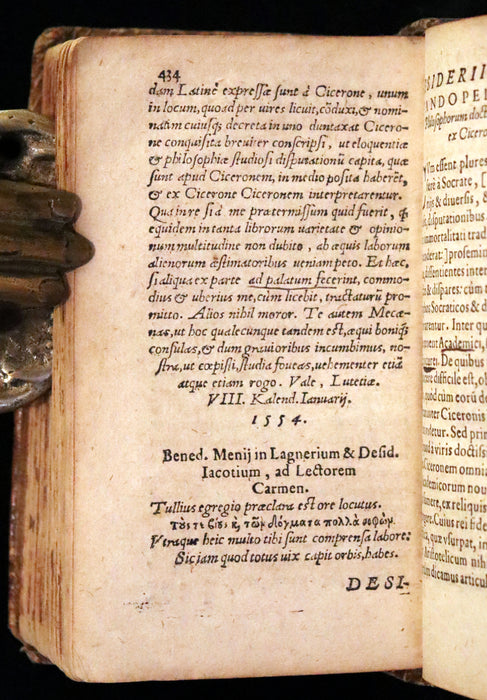 434
dam Latinè expressæ sunt à Cicerone, unum
in locum, quoad per vires licuit, cōduxi, & nomi-
natim cuiusq; decreta in uno duntaxat Cicero-
ne conquisita breviter conscripsi, ut eloquentiæ
& philosophiæ studiosi disputationū capita, quæ
sunt apud Ciceronem, in medio posita haberēt,
& ex Cicerone Ciceronem interpretarentur.
Qua in re si à me prætermissum quid fuerit, q̃
equidem in tanta librorum varietate & opinio-
num multitudine non dubito, ab æquis laborum
alienorum æstimatoribus veniam peto. Et hæc,
si aliqua ex parte ad palatum fecerint, commo-
dius & uberius me, cùm licebit, tractaturū pro-
mitto. Alios nihil moror. Te autem Mecæ-
nas, ut hoc qualecunque tandem est, æqui boniq;
consulas, & dum gravioribus incumbimus, no-
stra, ut cœpisti, studia foveas, vehementer etiā
atque etiam rogo. Vale, Lutetiæ.
VIII. Kalend. Ianuarij.
1554.
Bened. Menij in Lagnerium & Desid.
Iacotium, ad Lectorem
Carmen.
Tullius egregio præclara est ore locutus.
τῶν δόγματα πολλὰ σοφῶν
Utraque heic multo tibi sunt comprensa labore:
Sic jam quod totus vix capit orbis, habes.
DESI-
SIDERII
INDOPEI
Philosophorum doct
ex Cicero
m essent plures
fere à Socrate, [
ijs & diversis, &
disputationibus
mmortalitati trad
derat:] prosemin
dissentientes inter
& dispares: cùm t
os Socraticos & d
rentur. Inter qu
ment Academici, l
De quibus
re difficile est, ol
uod cùm eorū de
nter Ciceronis
detur. Sed prin
à viris doctiss
iceronem omnia
ademicorum nou
mere, ex reliquis
Cuius rei fide
quæ vsurpat, in
ristotelicum nih
um dicamus articul